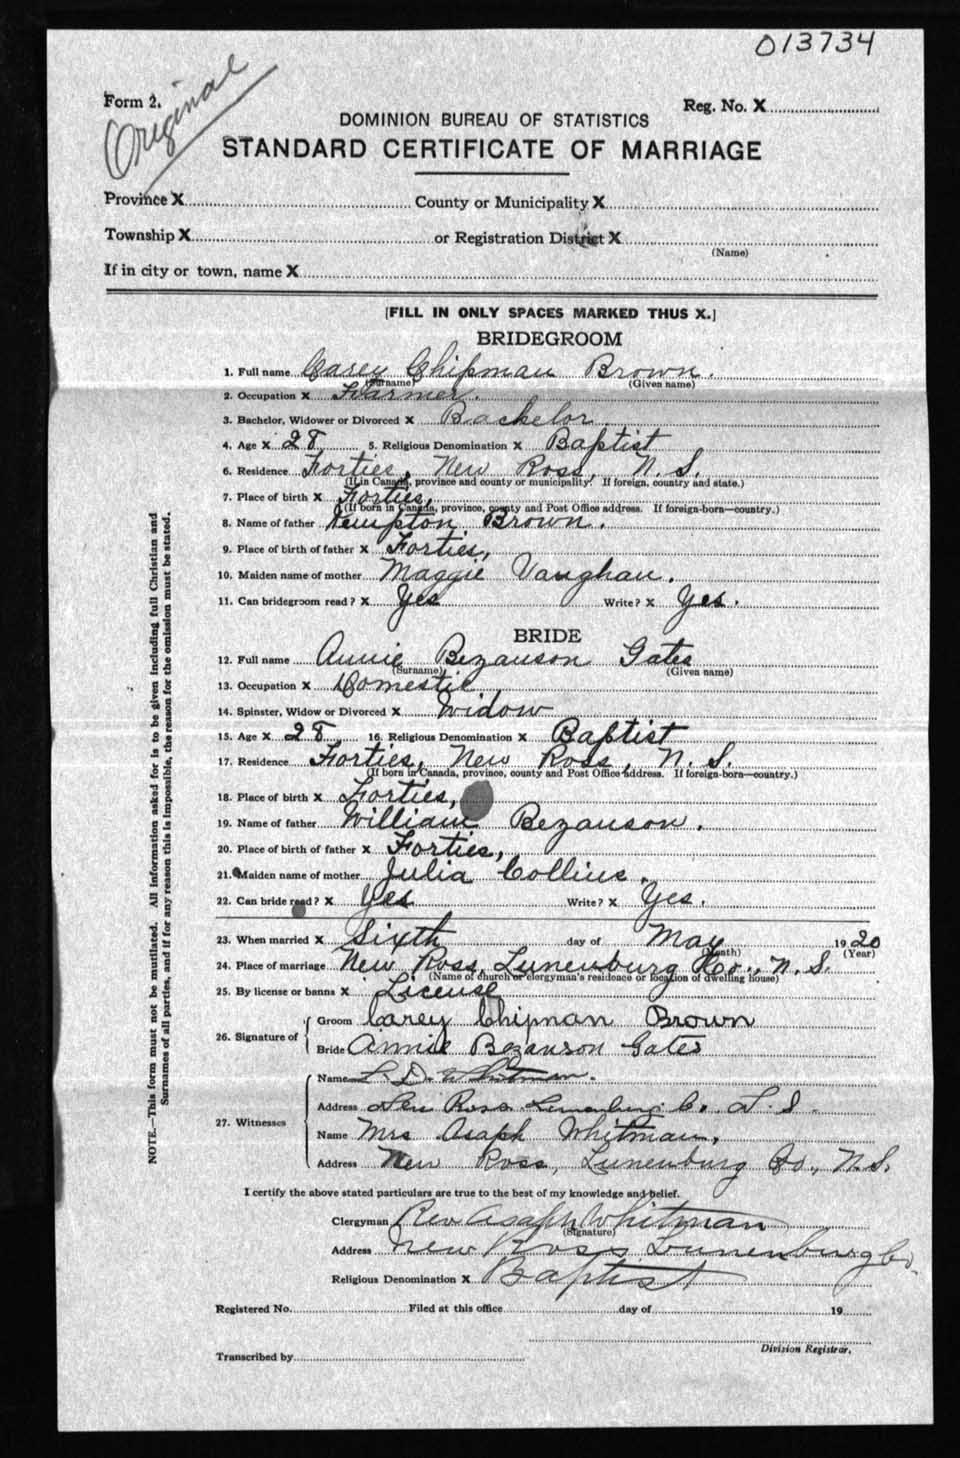 013734
Original
Form 2.
Reg. No. X
DOMINION BUREAU OF STATISTICS
STANDARD CERTIFICATE OF MARRIAGE
Province X County or Municipality X
Township X or Registration District X
(Name)
If in city or town, name X
[FILL IN ONLY SPACES MARKED THUS X.]
BRIDEGROOM
1. Full name Carey Chipman Brown.
(Surname) (Given name)
2. Occupation X Farmer.
3. Bachelor, Widower or Divorced X Bachelor
4. Age X 28 5. Religious Denomination X Baptist
6. Residence Forties, New Ross, N. S.
(If in Canada, province and county or municipality. If foreign, country and state.)
7. Place of birth X Forties,
(If born in Canada, province, county and Post Office address. If foreign-born—country.)
8. Name of father Kempton Brown.
9. Place of birth of father X Forties,
10. Maiden name of mother Maggie Vaughan.
11. Can bridegroom read? X Yes Write? X Yes.
BRIDE
12. Full name Annie Bezanson Gates
(Surname) (Given name)
13. Occupation X Domestic
14. Spinster, Widow or Divorced X Widow
15. Age X 28 16. Religious Denomination X Baptist
17. Residence Forties, New Ross, N. S.
(If born in Canada, province, county and Post Office address. If foreign-born—country.)
18. Place of birth X Forties,
19. Name of father William Bezanson.
20. Place of birth of father X Forties,
21. Maiden name of mother Julia Collins.
22. Can bride read? X Yes Write? X Yes.
23. When married X Sixth day of May 1920
(Month) (Year)
24. Place of marriage New Ross, Lunenburg Co., N. S.
(Name of church or clergyman's residence or location of dwelling house)
25. By license or banns X License
26. Signature of Groom Carey Chipman Brown
Bride Annie Bezanson Gates
27. Witnesses
Name D. Whitman.
Address New Ross Lunenburg Co.
Name Mrs Asaph Whitman,
Address New Ross, Lunenburg Co., N.S.
I certify the above stated particulars are true to the best of my knowledge and belief.
Clergyman Rev Asaph Whitman
(Signature)
Address New Ross Lunenburg Co.
Religious Denomination X Baptist
Registered No. Filed at this office day of 19
Division Registrar.
Transcribed by
NOTE.—This form must not be mutilated. All information asked for is to be given including full Christian and
Surnames of all parties, and if for any reason this is impossible, the reason for the omission must be stated.